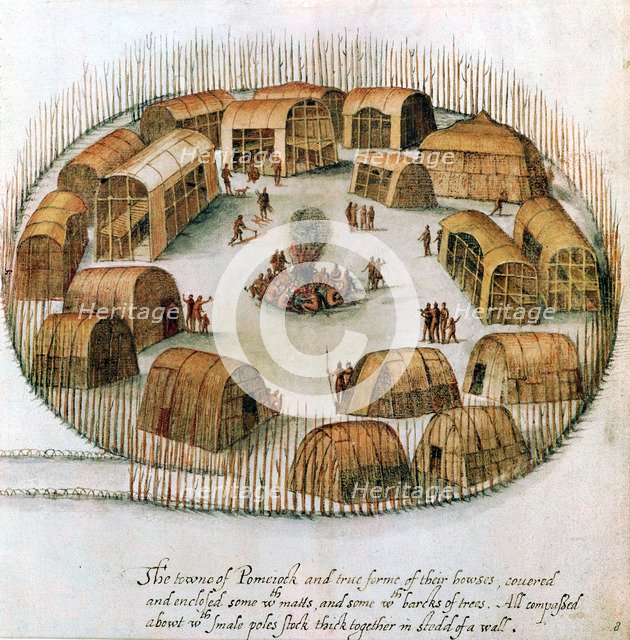 Heritage Heritage
Heritage Heritage
C
Heritage Heritage
Heritage Heritage
The towne of Pomeiock and true forme of their howses, couered
and enclosed some wth matts, and some wth barcks of trees. All compassed
abowt wth smale poles stock thick together in stedd of a wall.
8